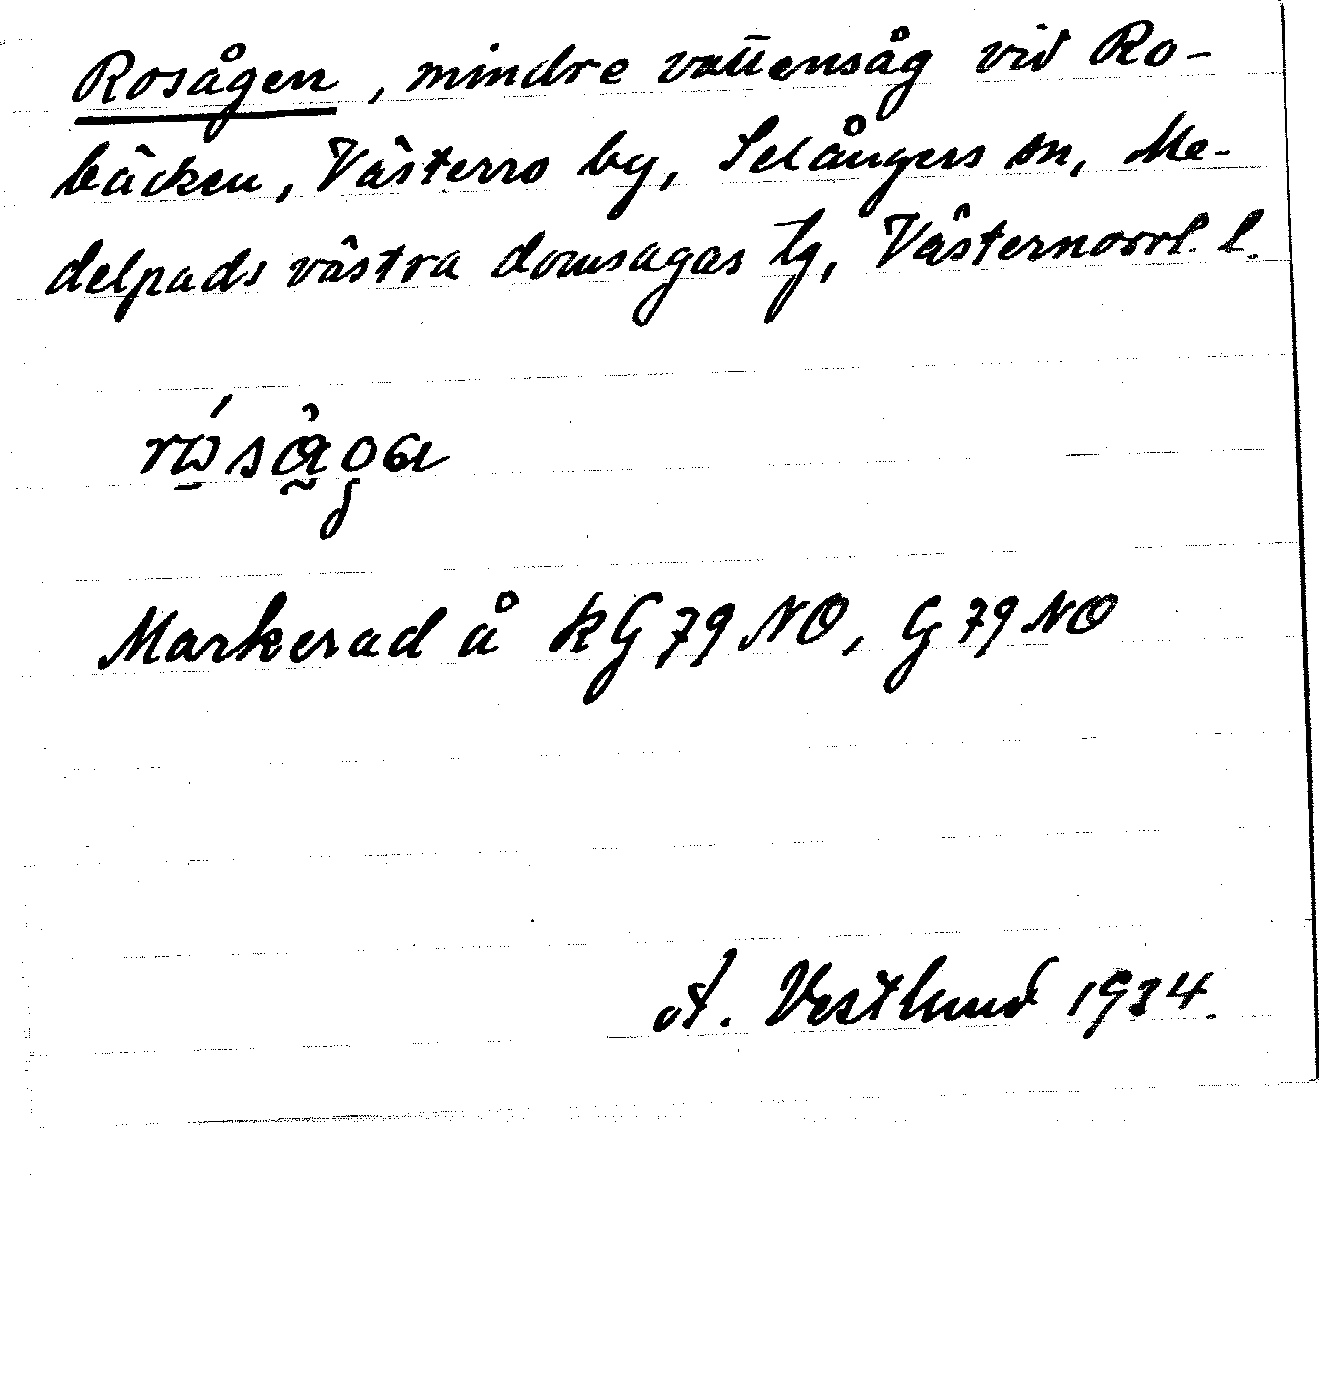 Rosågen, mindre vattensåg vid Ro-
bäcken, Västerro by, Selångers sn, Me-
delpads västra domsagas tg, Västernorrl. l.
Markerad å kG 79 NO, G 79 NO
A. Vestlund 1934.